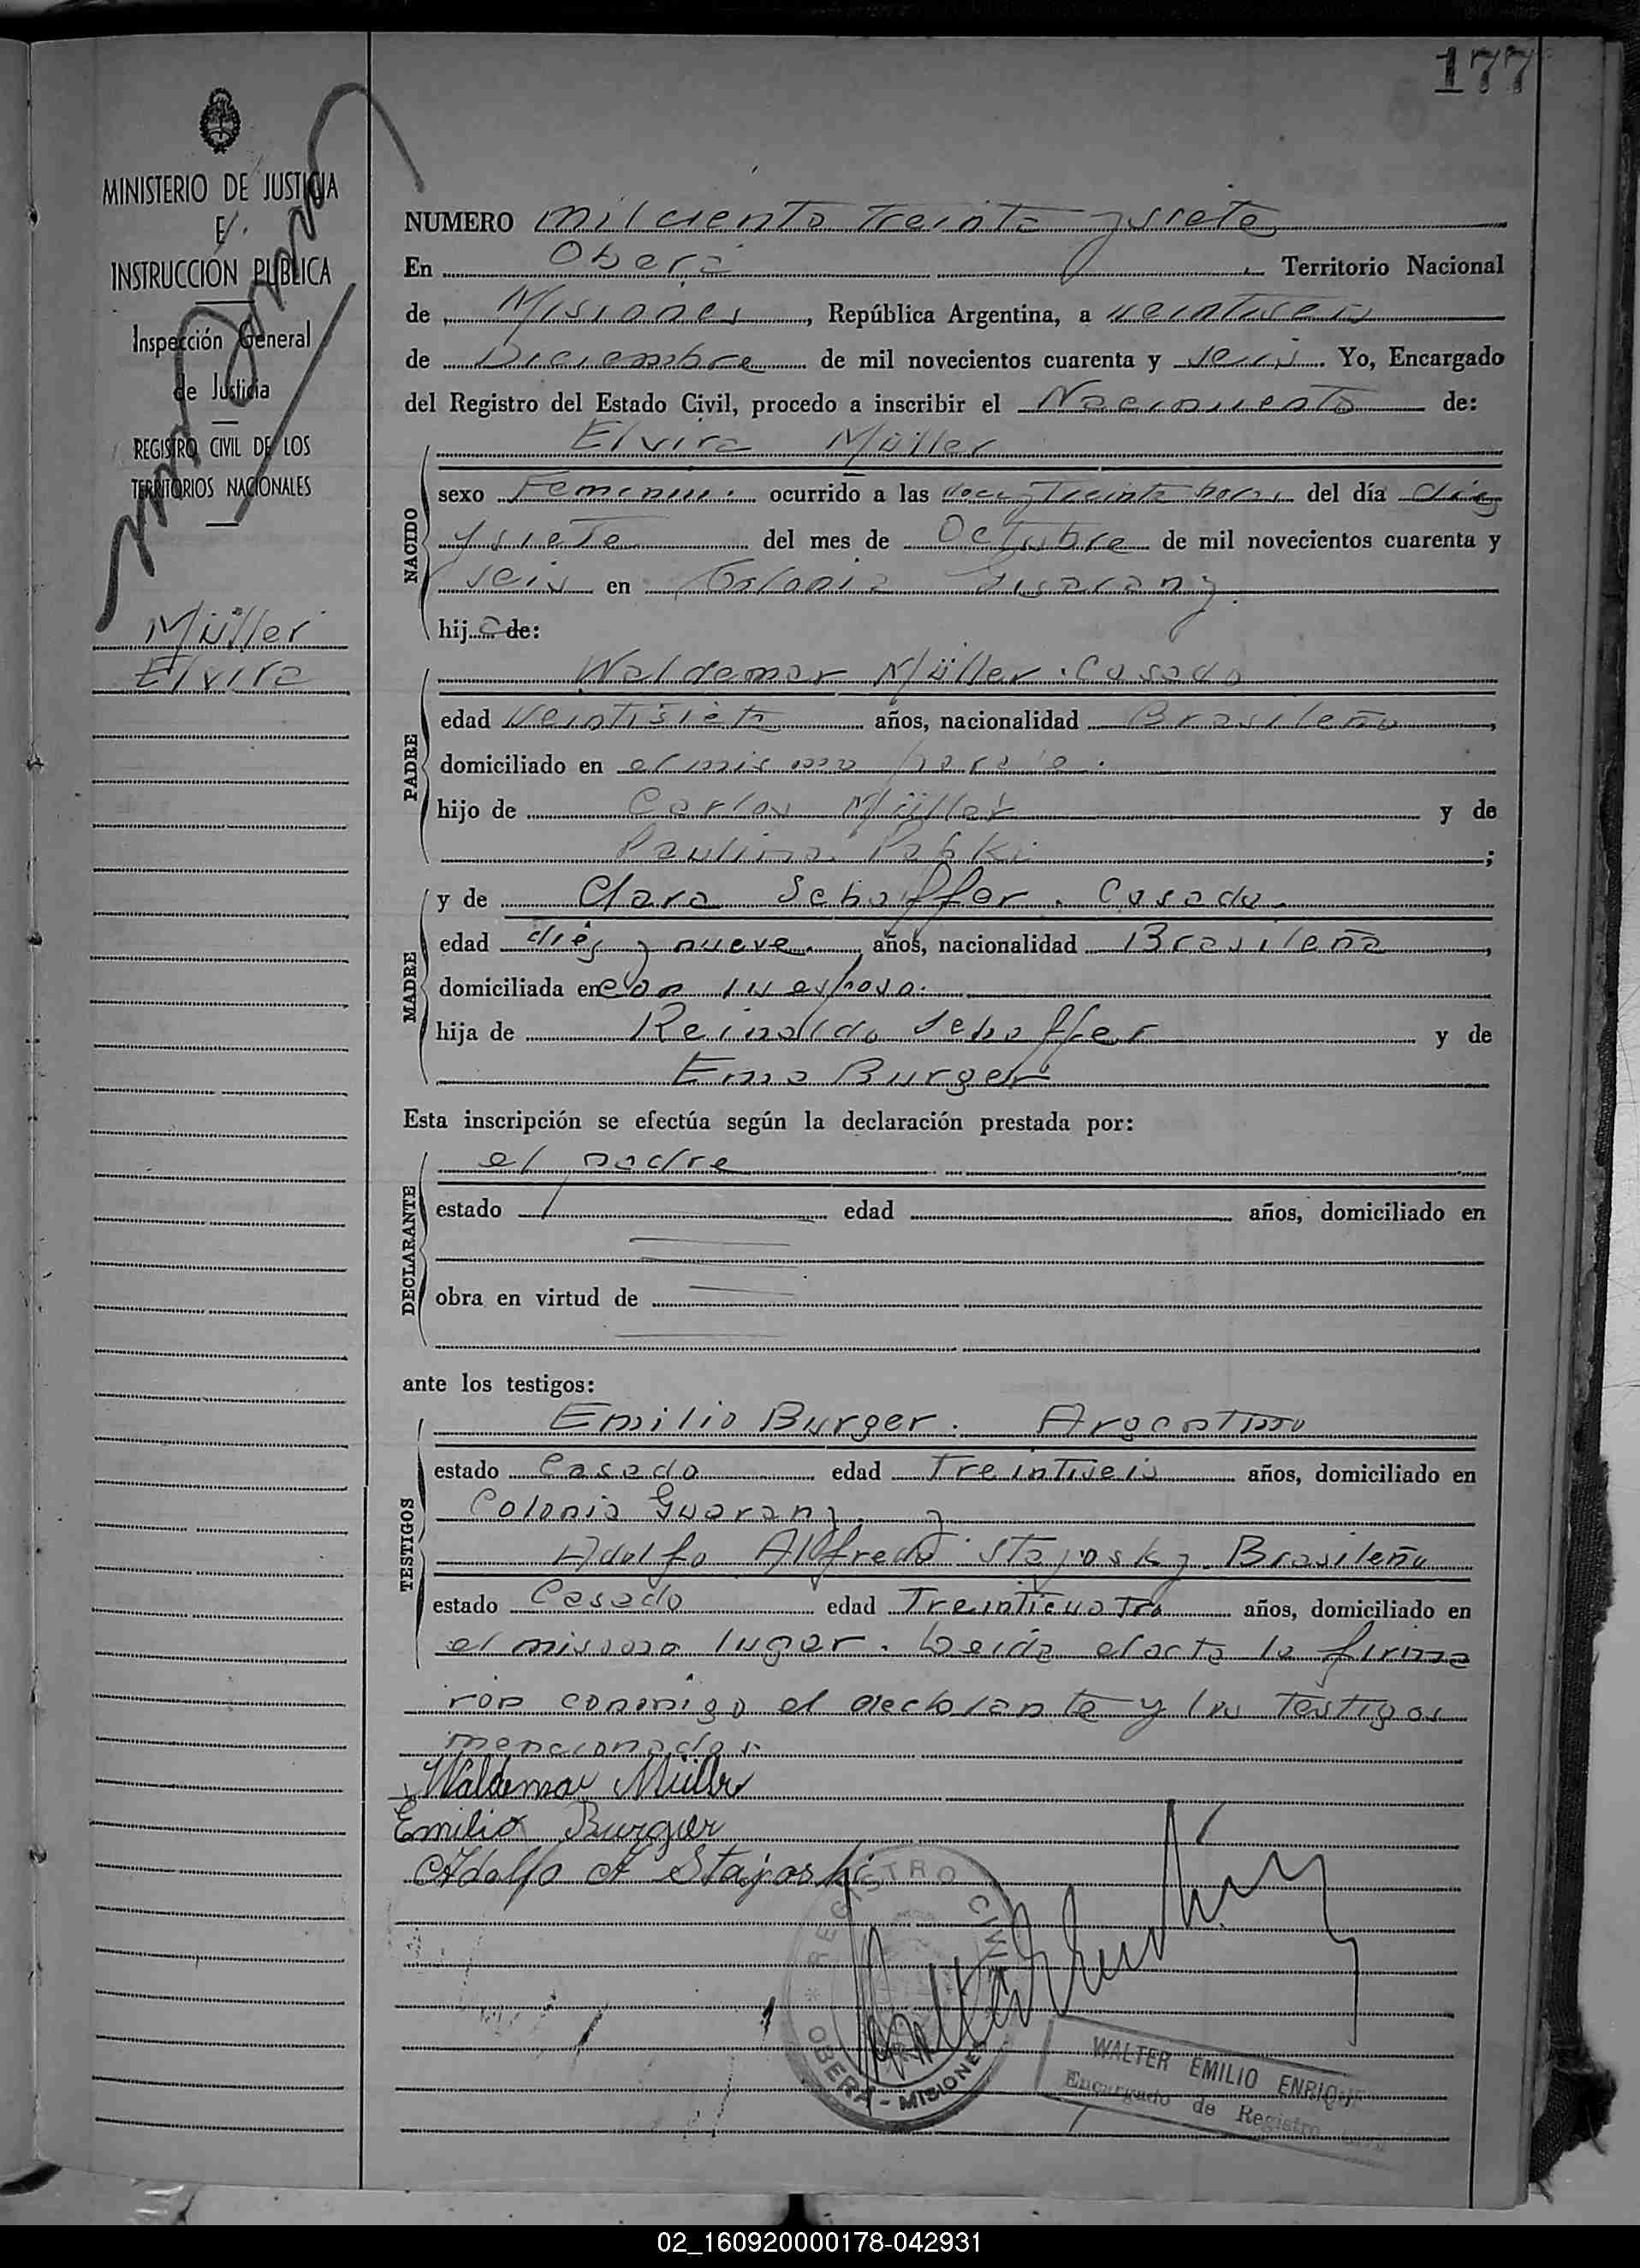 177
MINISTERIO DE JUSTICIA
E
INSTRUCCIÓN PUBLICA
Inspección General
de Justicia
REGISTRO CIVIL DE LOS
TERRITORIOS NACIONALES
Müller
Elvira
NUMERO mil ciento treinta y siete
En Oberá Territorio Nacional
de Misiones, República Argentina, a veintiseis
de Diciembre de mil novecientos cuarenta y seis. Yo, Encargado
del Registro del Estado Civil, procedo a inscribir el Nacimiento de:
Elvira Müller
NACIDO
sexo Femenino. ocurrido a las doce y treinta horas del día diez
y siete del mes de Octubre de mil novecientos cuarenta y
seis en Colonia Guarany.
hija de:
PADRE
Waldemar Müller. Casado
edad veintisiete años, nacionalidad Brasileño,
domiciliado en el mismo paraje.
hijo de Carlos Müller y de
Paulina Papki;
MADRE
y de Clara Schaffer. Casada.
edad diez y nueve. años, nacionalidad Brasileña,
domiciliada en con su esposo.
hija de Reinoldo Schaffer y de
Ema Burger
Esta inscripción se efectúa según la declaración prestada por:
DECLARANTE
el padre
estado edad años, domiciliado en
obra en virtud de
ante los testigos:
TESTIGOS
Emilio Burger. Argentino
estado Casado edad Treintiseis años, domiciliado en
Colonia Guarany. y
Adolfo Alfredo Stajosky. Brasileño
estado Casado edad Treinticuatro años, domiciliado en
el mismo lugar. Leida el acta la firma
ron conmigo el declarante y los testigos
mencionados.
Waldemar Müller
Emilio Burger
Adolfo A Stajoski
REGISTRO CIVIL
OBERA - MISIONES
WALTER EMILIO ENRIQUE
Encargado de Registro
02_160920000178-042931